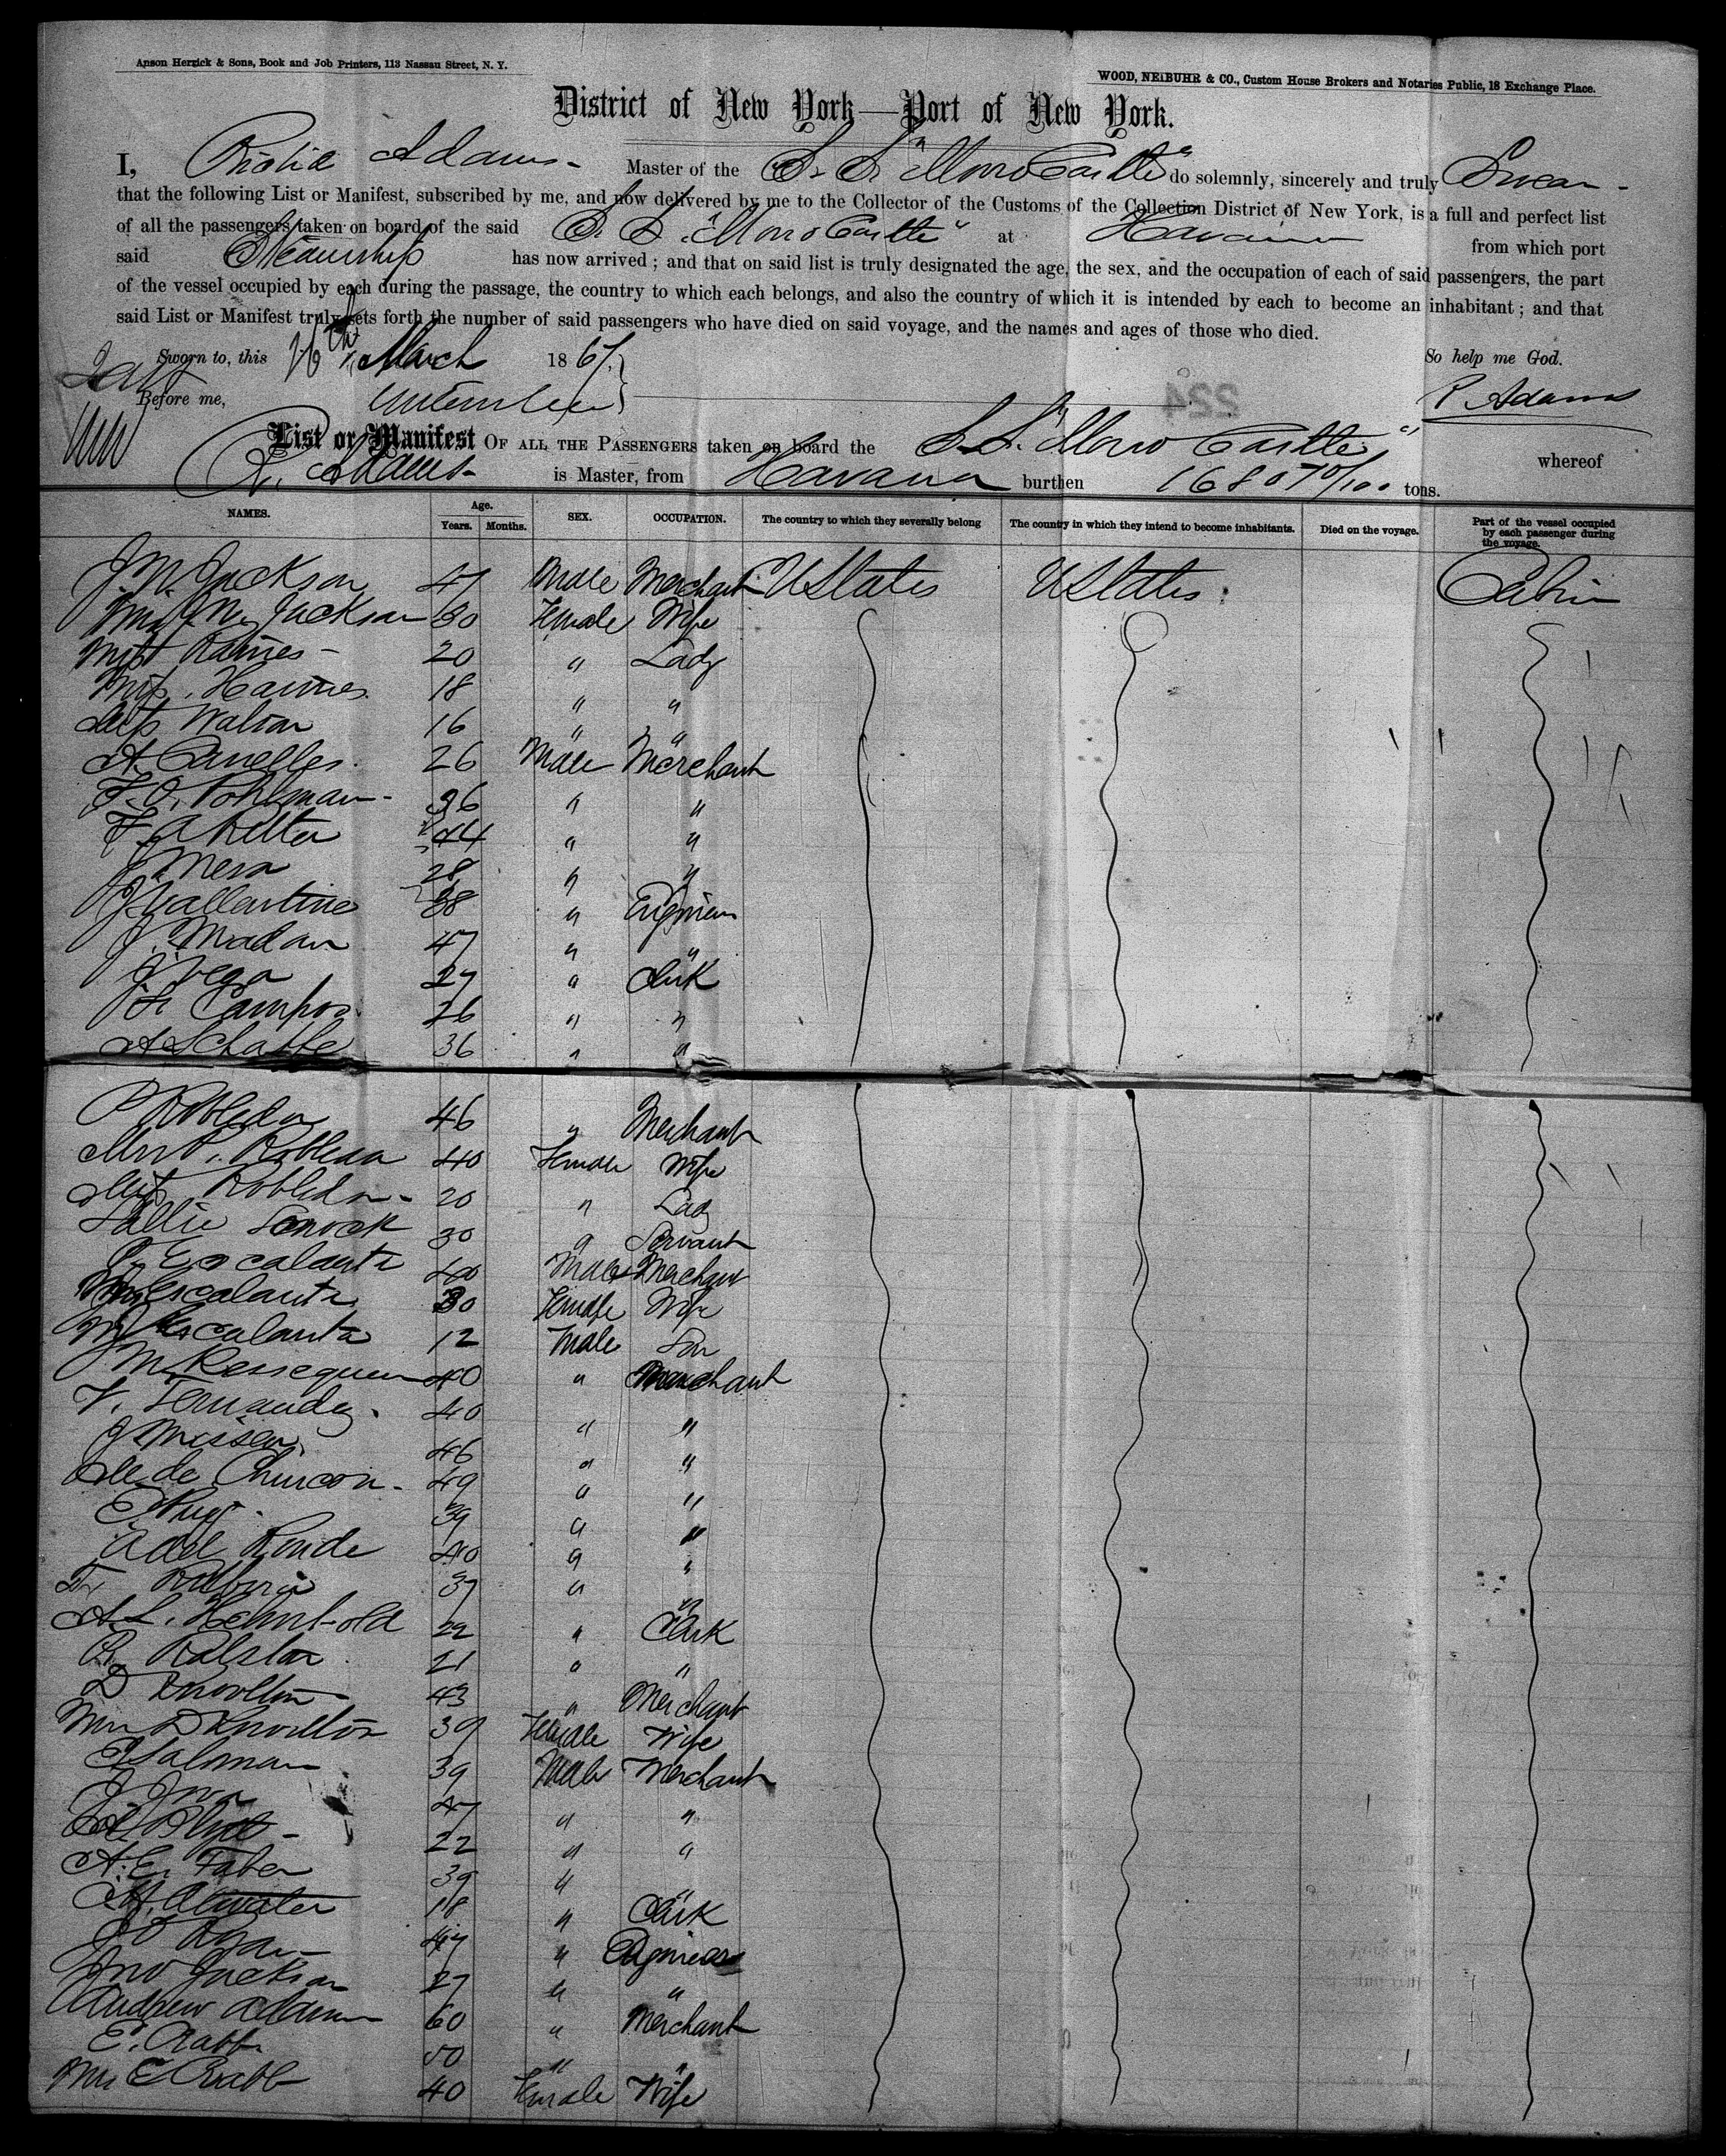 Anson Herrick & Sons, Book and Job Printers, 113 Nassau Street, N. Y.
WOOD, NEIBUHR & CO., Custom House Brokers and Notaries Public, 18 Exchange Place.
District of New York—Port of New York.
I, Adams - Master of the S. S. "Morro Castle" do solemnly, sincerely and truly Swear -
that the following List or Manifest, subscribed by me, and now delivered by me to the Collector of the Customs of the Collection District of New York, is a full and perfect list
of all the passengers taken on board of the said S. S. "Morro Castle" at Havana from which port
said Steamship has now arrived; and that on said list is truly designated the age, the sex, and the occupation of each of said passengers, the part
of the vessel occupied by each during the passage, the country to which each belongs, and also the country of which it is intended by each to become an inhabitant; and that
said List or Manifest truly sets forth the number of said passengers who have died on said voyage, and the names and ages of those who died.
Sworn to, this 16th March 1867. So help me God.
Before me, P. Adams
224
List or Manifest OF ALL THE PASSENGERS taken on board the S.S. "Morro Castle" whereof
R. Adams - is Master, from Havana burthen 1680 70/100 tons.
NAMES. Age. Years. Months. SEX. OCCUPATION. The country to which they severally belong The country in which they intend to become inhabitants. Died on the voyage. Part of the vessel occupied by each passenger during the voyage.
J. M. Jackson 47 Male Merchant U States U States Cabin
Mrs J. M. Jackson 30 Female Wife
Miss Raines - 20 " Lady
Miss. Haines. 18 " "
Miss Watson 16 " "
A. Canelles. 26 Male Merchant
F. O. Pohlman - 36 " "
F. A. 44 " "
J. Mera 28 " "
J. Vallentine 38 " Engineer
J. Madan 47 " "
J. Vega 27 " Clerk
Campos. 26 " "
A Schaffe 36 " "
P Robledo 46 " Merchant
Mrs P. Robledo 40 Female Wife
Miss Robledo - 20 " Lady
Sallie 30 " Servant
P. Escalanta 40 Male Merchant
Mrs Escalanta 30 Female Wife
Escalanta 12 Male Son
J M 40 " Merchant
V. Fernandez. 40 " "
J 46 " "
de Chincon. 49 " "
E. Puig. 39 " "
Adel Conde 40 " "
37 " "
A. L. Helmbold 22 " Clerk
R. Ralston 21 " "
D Knowlton 43 " Merchant
Mrs D Knowlton 39 Female Wife
Salomon 39 Male Merchant
J 47 " "
22 " "
A. E. Faber 39 " "
A. Atwater 18 " Clerk
Ryan 47 " Engineer
Jno Jackson 27 " "
Andrew Adams 60 " Merchant
E. Crabb 50 " "
Mrs E Crabb 40 Female Wife